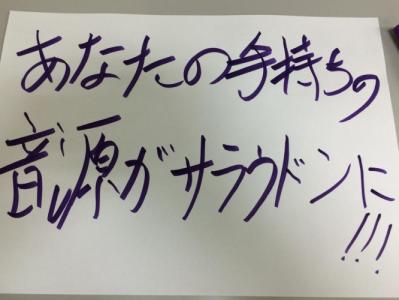 あなたの手持ちの
音源がサラウドンに!!!